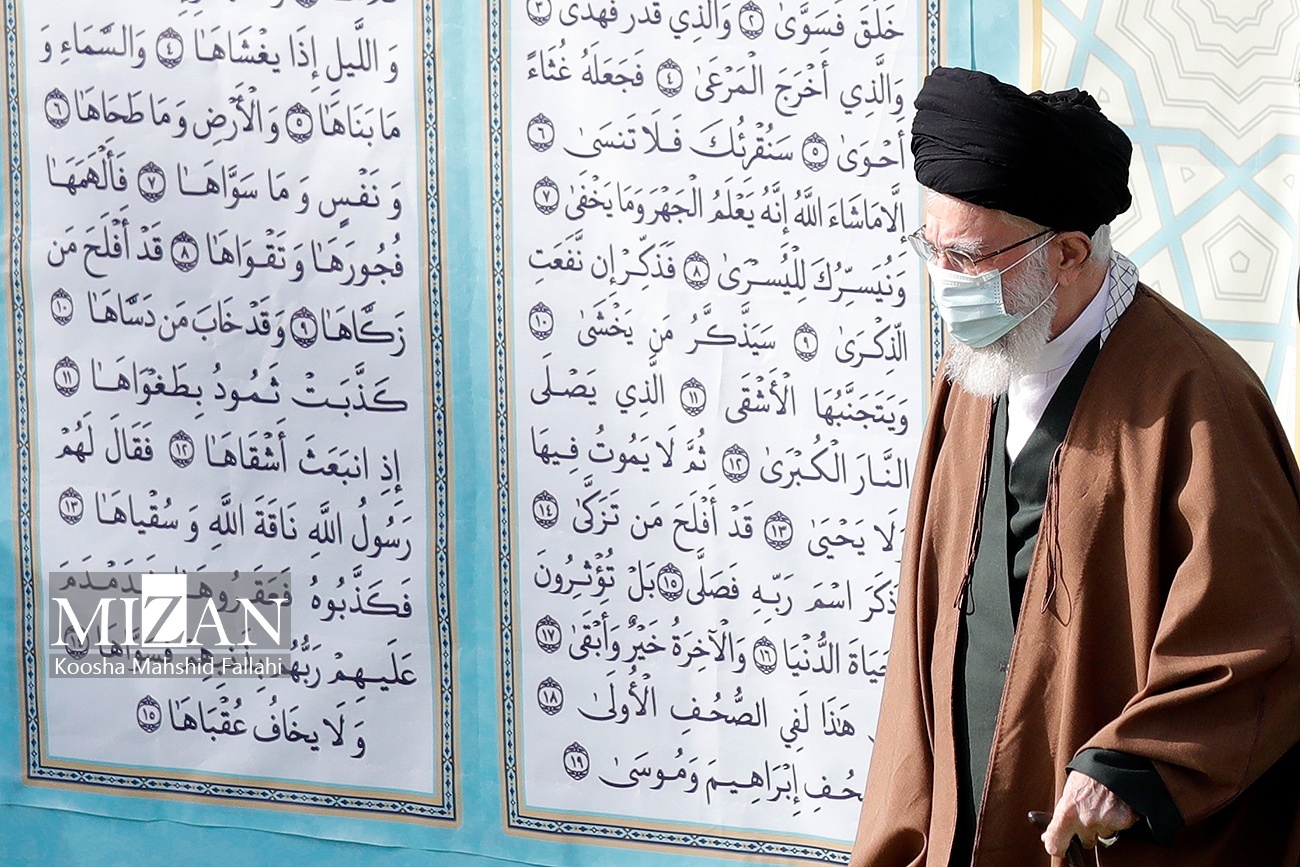 خَلَقَ فَسَوَّىٰ ٢ وَالَّذِي قَدَّرَ فَهَدَىٰ ٣
وَالَّذِي أَخْرَجَ الْمَرْعَىٰ ٤ فَجَعَلَهُ غُثَاءً
أَحْوَىٰ ٥ سَنُقْرِئُكَ فَلَا تَنسَىٰ ٦
إِلَّا مَا شَاءَ اللَّهُ إِنَّهُ يَعْلَمُ الْجَهْرَ وَمَا يَخْفَىٰ ٧
وَنُيَسِّرُكَ لِلْيُسْرَىٰ ٨ فَذَكِّرْ إِن نَّفَعَتِ
الذِّكْرَىٰ ٩ سَيَذَّكَّرُ مَن يَخْشَىٰ ١٠
وَيَتَجَنَّبُهَا الْأَشْقَى ١١ الَّذِي يَصْلَى
النَّارَ الْكُبْرَىٰ ١٢ ثُمَّ لَا يَمُوتُ فِيهَا
وَلَا يَحْيَىٰ ١٣ قَدْ أَفْلَحَ مَن تَزَكَّىٰ ١٤
ذَكَرَ اسْمَ رَبِّهِ فَصَلَّىٰ ١٥ بَلْ تُؤْثِرُونَ
الدُّنْيَا ١٦ وَالْآخِرَةُ خَيْرٌ وَأَبْقَىٰ ١٧
هَٰذَا لَفِي الصُّحُفِ الْأُولَىٰ ١٨
إِبْرَاهِيمَ وَمُوسَىٰ ١٩
وَ اللَّيْلِ إِذَا يَغْشَاهَا ٤ وَالسَّمَاءِ وَ
مَا بَنَاهَا ٥ وَالْأَرْضِ وَ مَا طَحَاهَا ٦
وَ نَفْسٍ وَ مَا سَوَّاهَا ٧ فَأَلْهَمَهَا
فُجُورَهَا وَ تَقْوَاهَا ٨ قَدْ أَفْلَحَ مَن
زَكَّاهَا ٩ وَقَدْ خَابَ مَن دَسَّاهَا ١٠
كَذَّبَتْ ثَمُودُ بِطَغْوَاهَا ١١
إِذِ انبَعَثَ أَشْقَاهَا ١٢ فَقَالَ لَهُمْ
رَسُولُ اللَّهِ نَاقَةَ اللَّهِ وَ سُقْيَاهَا ١٣
فَكَذَّبُوهُ فَعَقَرُوهَا فَدَمْدَمَ
عَلَيْهِمْ رَبُّهُم بِذَنبِهِمْ فَسَوَّاهَا
وَ لَا يَخَافُ عُقْبَاهَا ١٥
MIZAN
Koosha Mahshid Fallahi